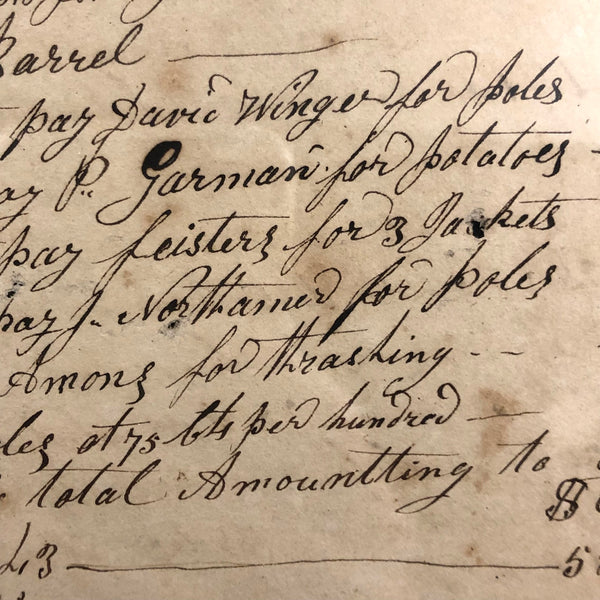 Barrel
pay David Winger for poles
pay P. Garman for potatoes
pay feisters for 3 Jackets
pay J. Northamer for poles
Amons for thrashing
at 75 Cts per hundred
total Amountting to
$
43 5